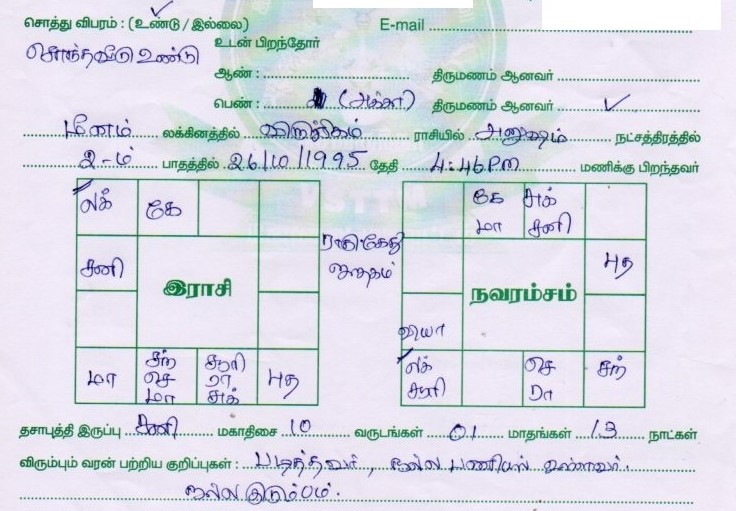 சொத்து விபரம் : (உண்டு / இல்லை) E-mail
சொந்தவீடு உண்டு உடன் பிறந்தோர்
ஆண் : திருமணம் ஆனவர்
பெண் : (அக்கா) திருமணம் ஆனவர் ✓
மீனம் லக்கினத்தில் விருச்சிகம் ராசியில் அனுஷம் நட்சத்திரத்தில்
2-ம் பாதத்தில் 26/10/1995 தேதி 4:46PM மணிக்கு பிறந்தவர்
லக் கே
கே சுக்
மா சனி
ராகு கேது
ஜாதகம்
சனி
புத
இராசி
நவரம்சம்
வியா
மா
சந்
செ
மா
சூரி
ரா
சுக்
புத
லக்
சூரி
செ
ரா
சந்
தசாபுத்தி இருப்பு சனி மகாதிசை 10 வருடங்கள் 01 மாதங்கள் 13 நாட்கள்
விரும்பும் வரன் பற்றிய குறிப்புகள் : படித்தவர், நல்ல பணியில் உள்ளவர்.
நல்ல குடும்பம்.